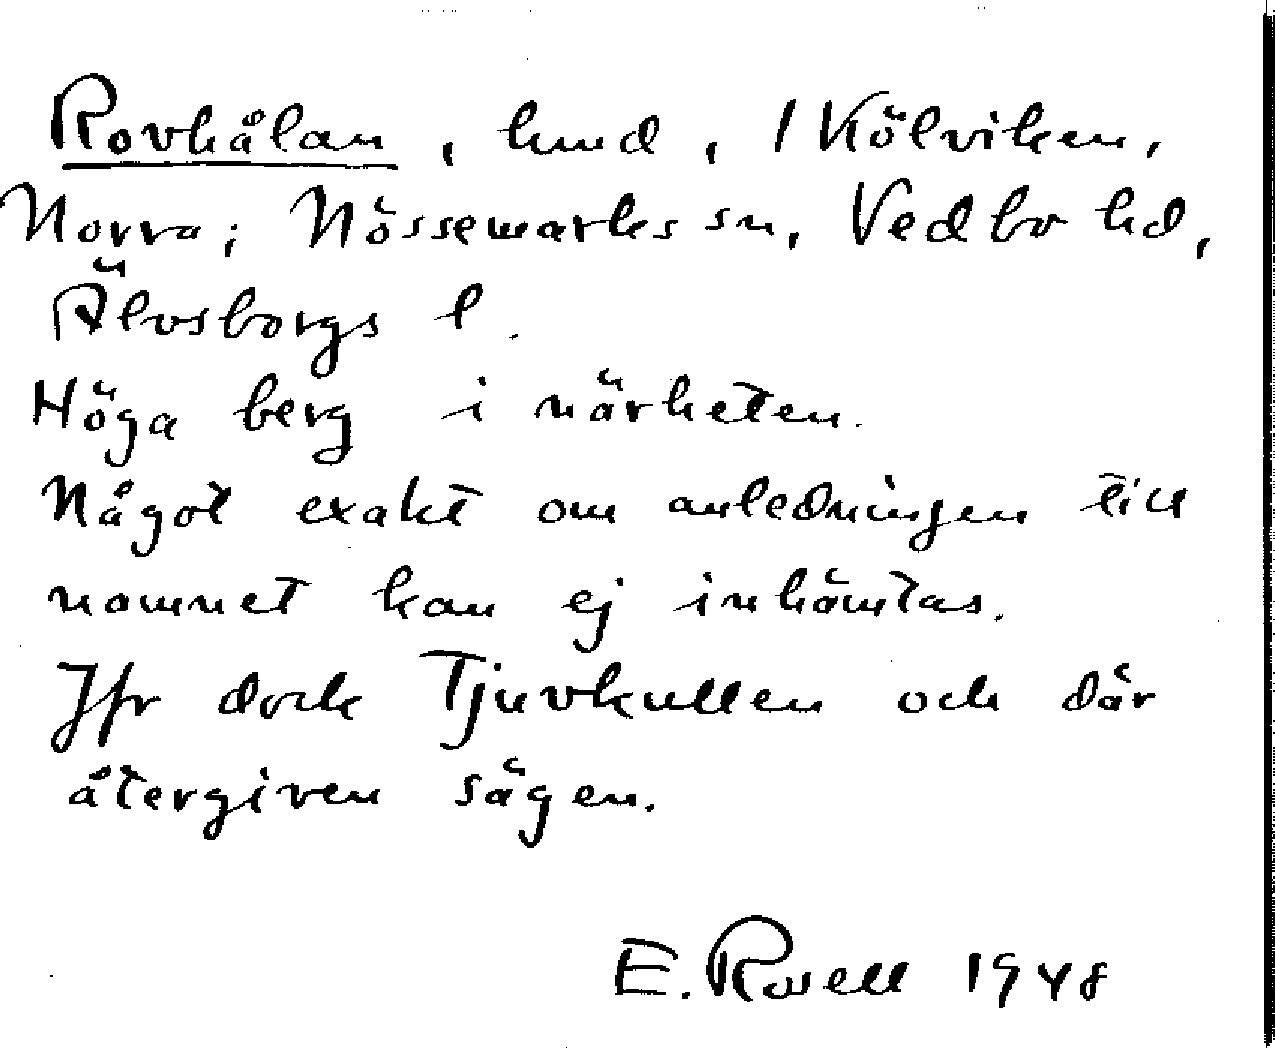 Rovhålan, lund, 1 Kölviken,
Norra; Nössemarks sn, Vedbo hd,
Älvsborgs l.
Höga berg i närheten.
Något exakt om anledningen till
namnet kan ej inhämtas.
Jfr dock Tjuvkullen och där
återgiven sägen.
E. Rosell 1948